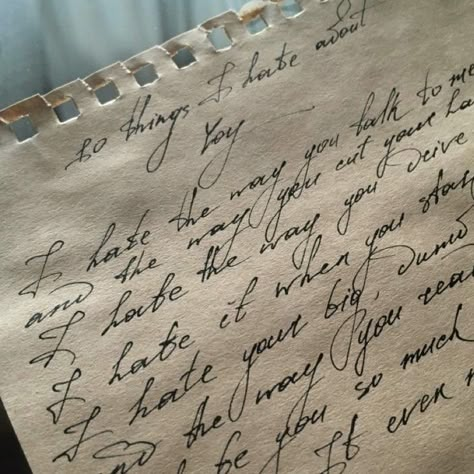 10 things I hate about
You —
I hate the way you talk to me
and the way you cut your ha
I hate the way you drive
I hate it when you star
I hate your big, dumb
and the way you rea
hate you so much
It even